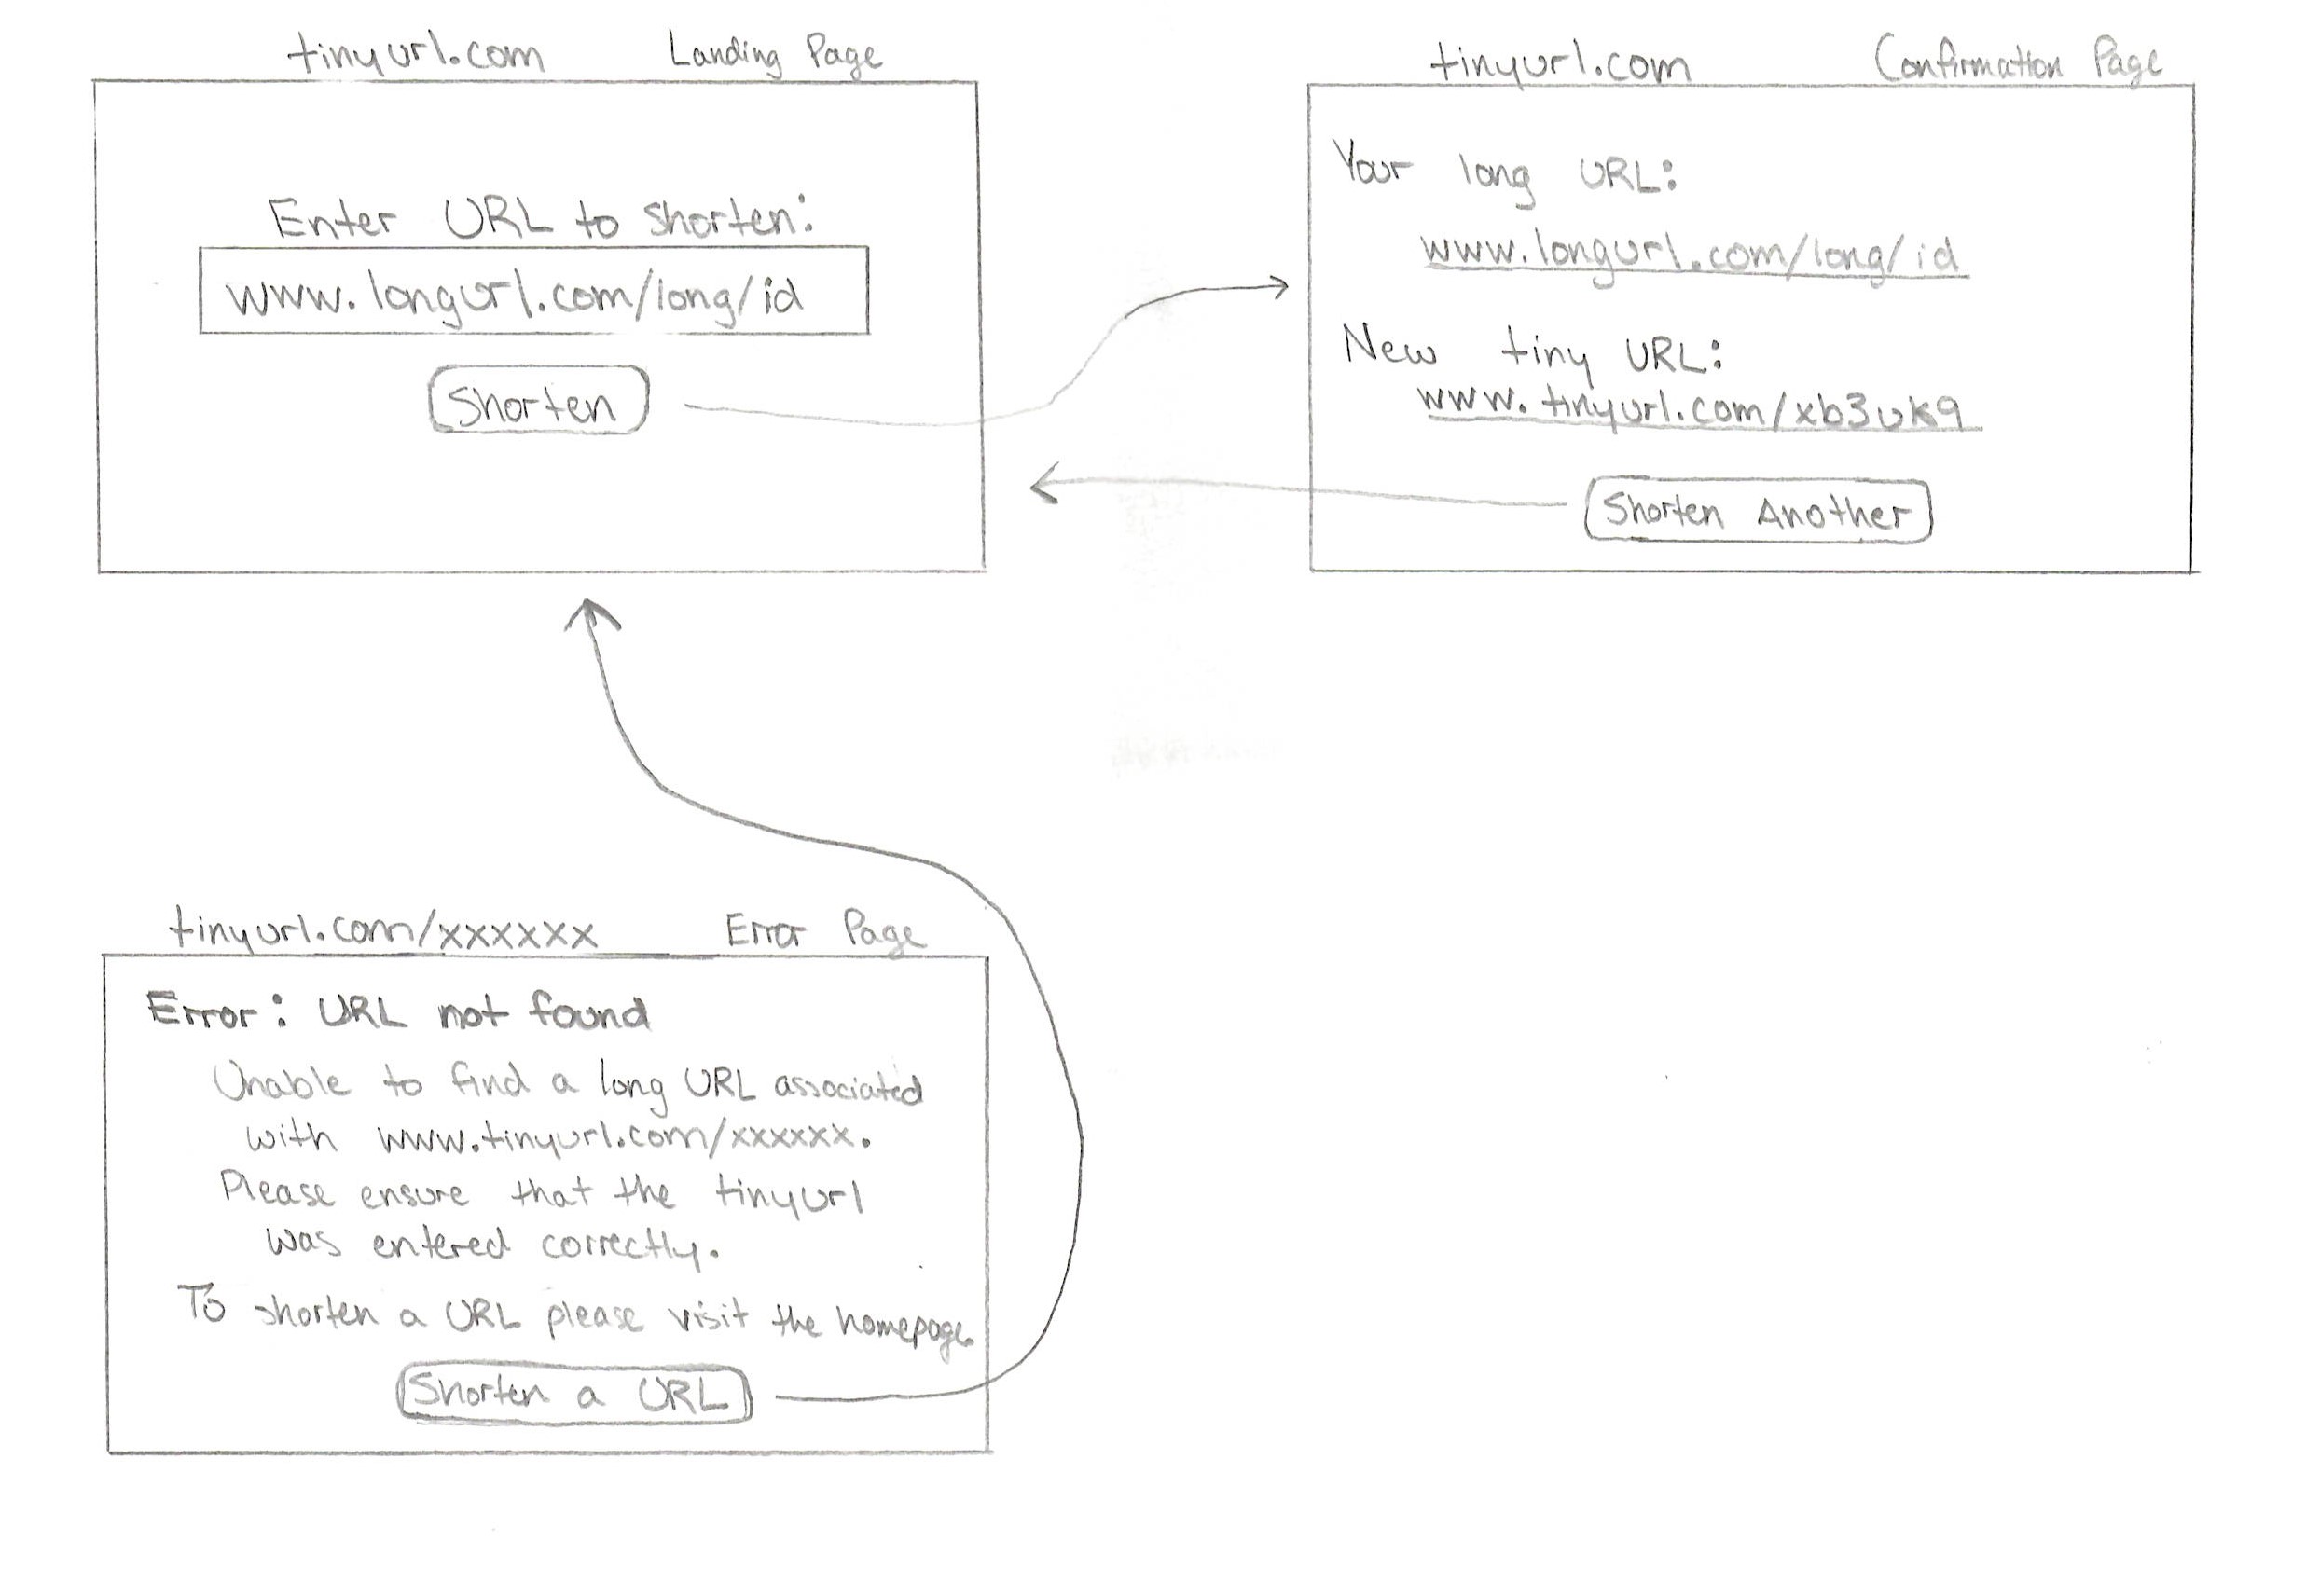 tinyurl.com Landing Page
Enter URL to shorten:
www.longurl.com/long/id
Shorten
tinyurl.com Confirmation Page
Your long URL:
www.longurl.com/long/id
New tiny URL:
www.tinyurl.com/xb3uk9
Shorten Another
tinyurl.com/xxxxxx Error Page
Error: URL not found
Unable to find a long URL associated
with www.tinyurl.com/xxxxxx.
Please ensure that the tinyurl
was entered correctly.
To shorten a URL please visit the homepage.
Shorten a URL